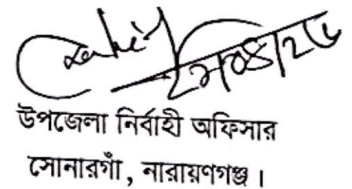 উপজেলা নির্বাহী অফিসার
সোনারগাঁ, নারায়ণগঞ্জ।